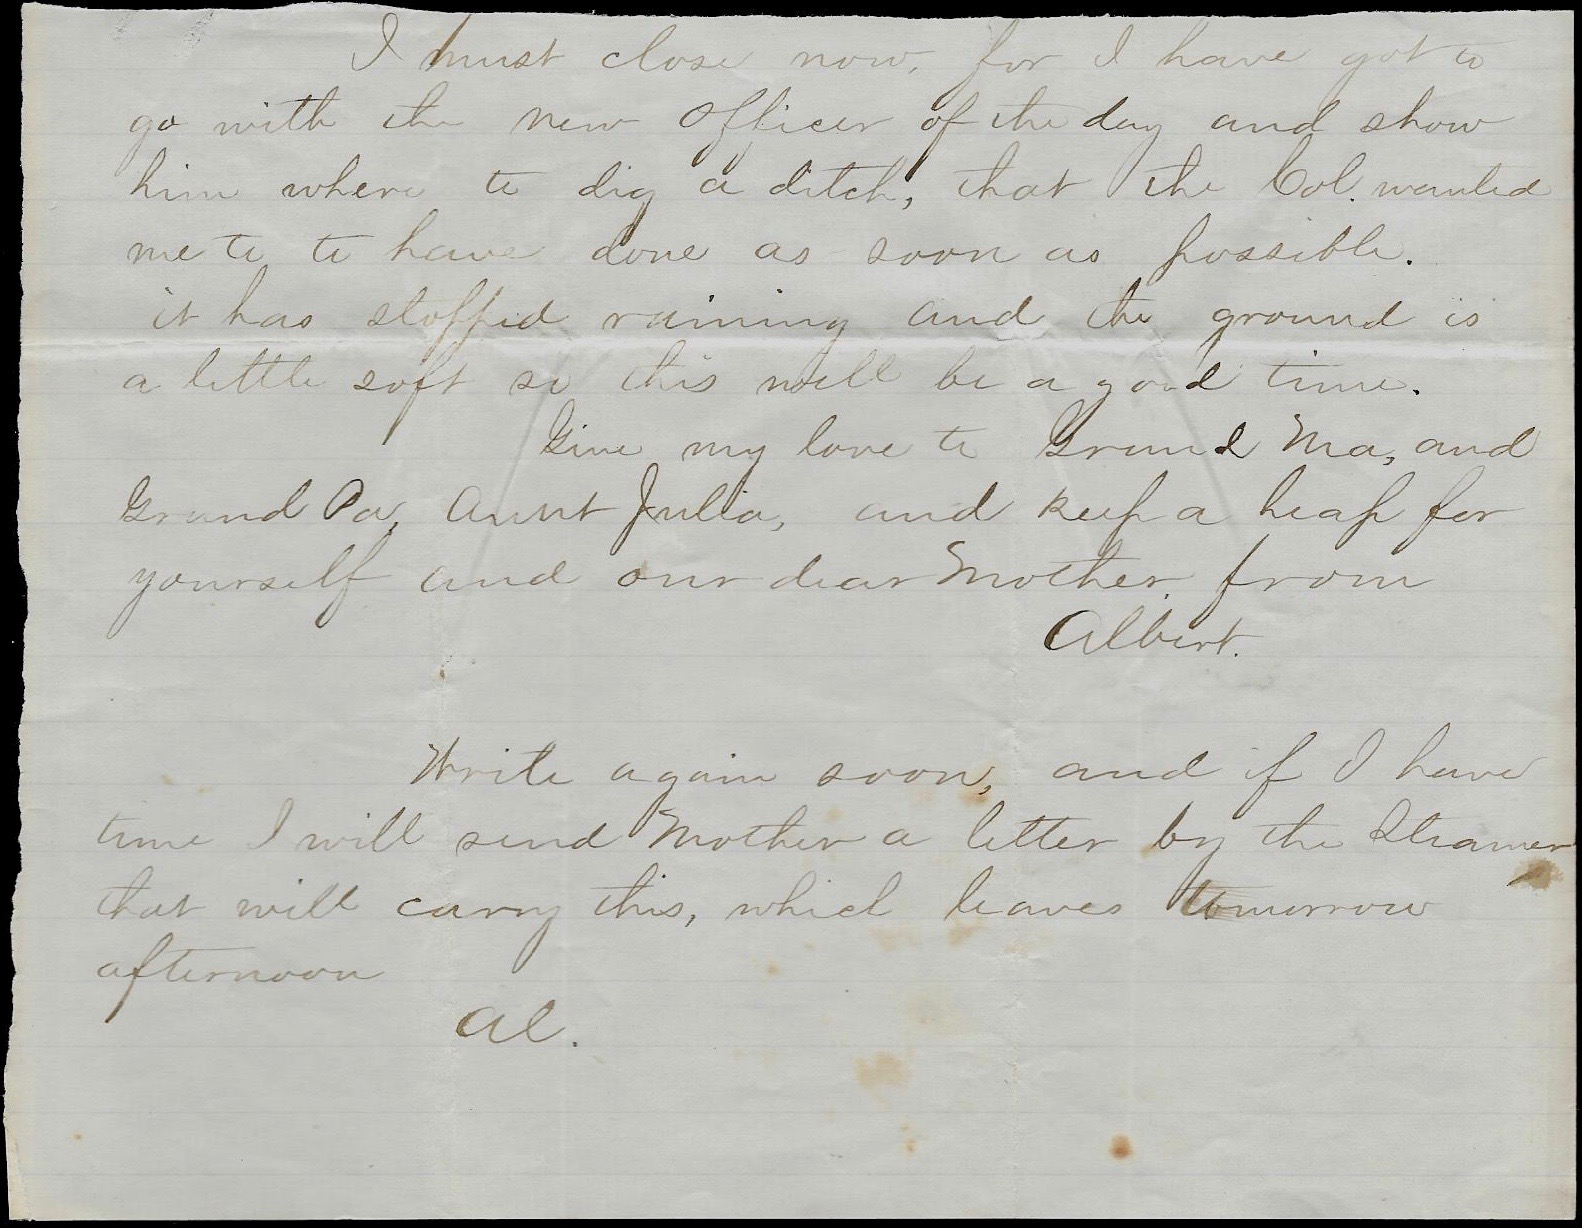 I must close now, for I have got to
go with the new Officer of the day and show
him where to dig a ditch, that the Col. wanted
me to to have done as soon as possible.
it has stopped raining and the ground is
a little soft so this will be a good time.
Give my love to Grand Ma, and
Grand Pa, Aunt Julia, and keep a heap for
yourself and our dear Mother. from
Albert.
Write again soon, and if I have
time I will send Mother a letter by the Steamer
that will carry this, which leaves tomorrow
afternoon
Al.